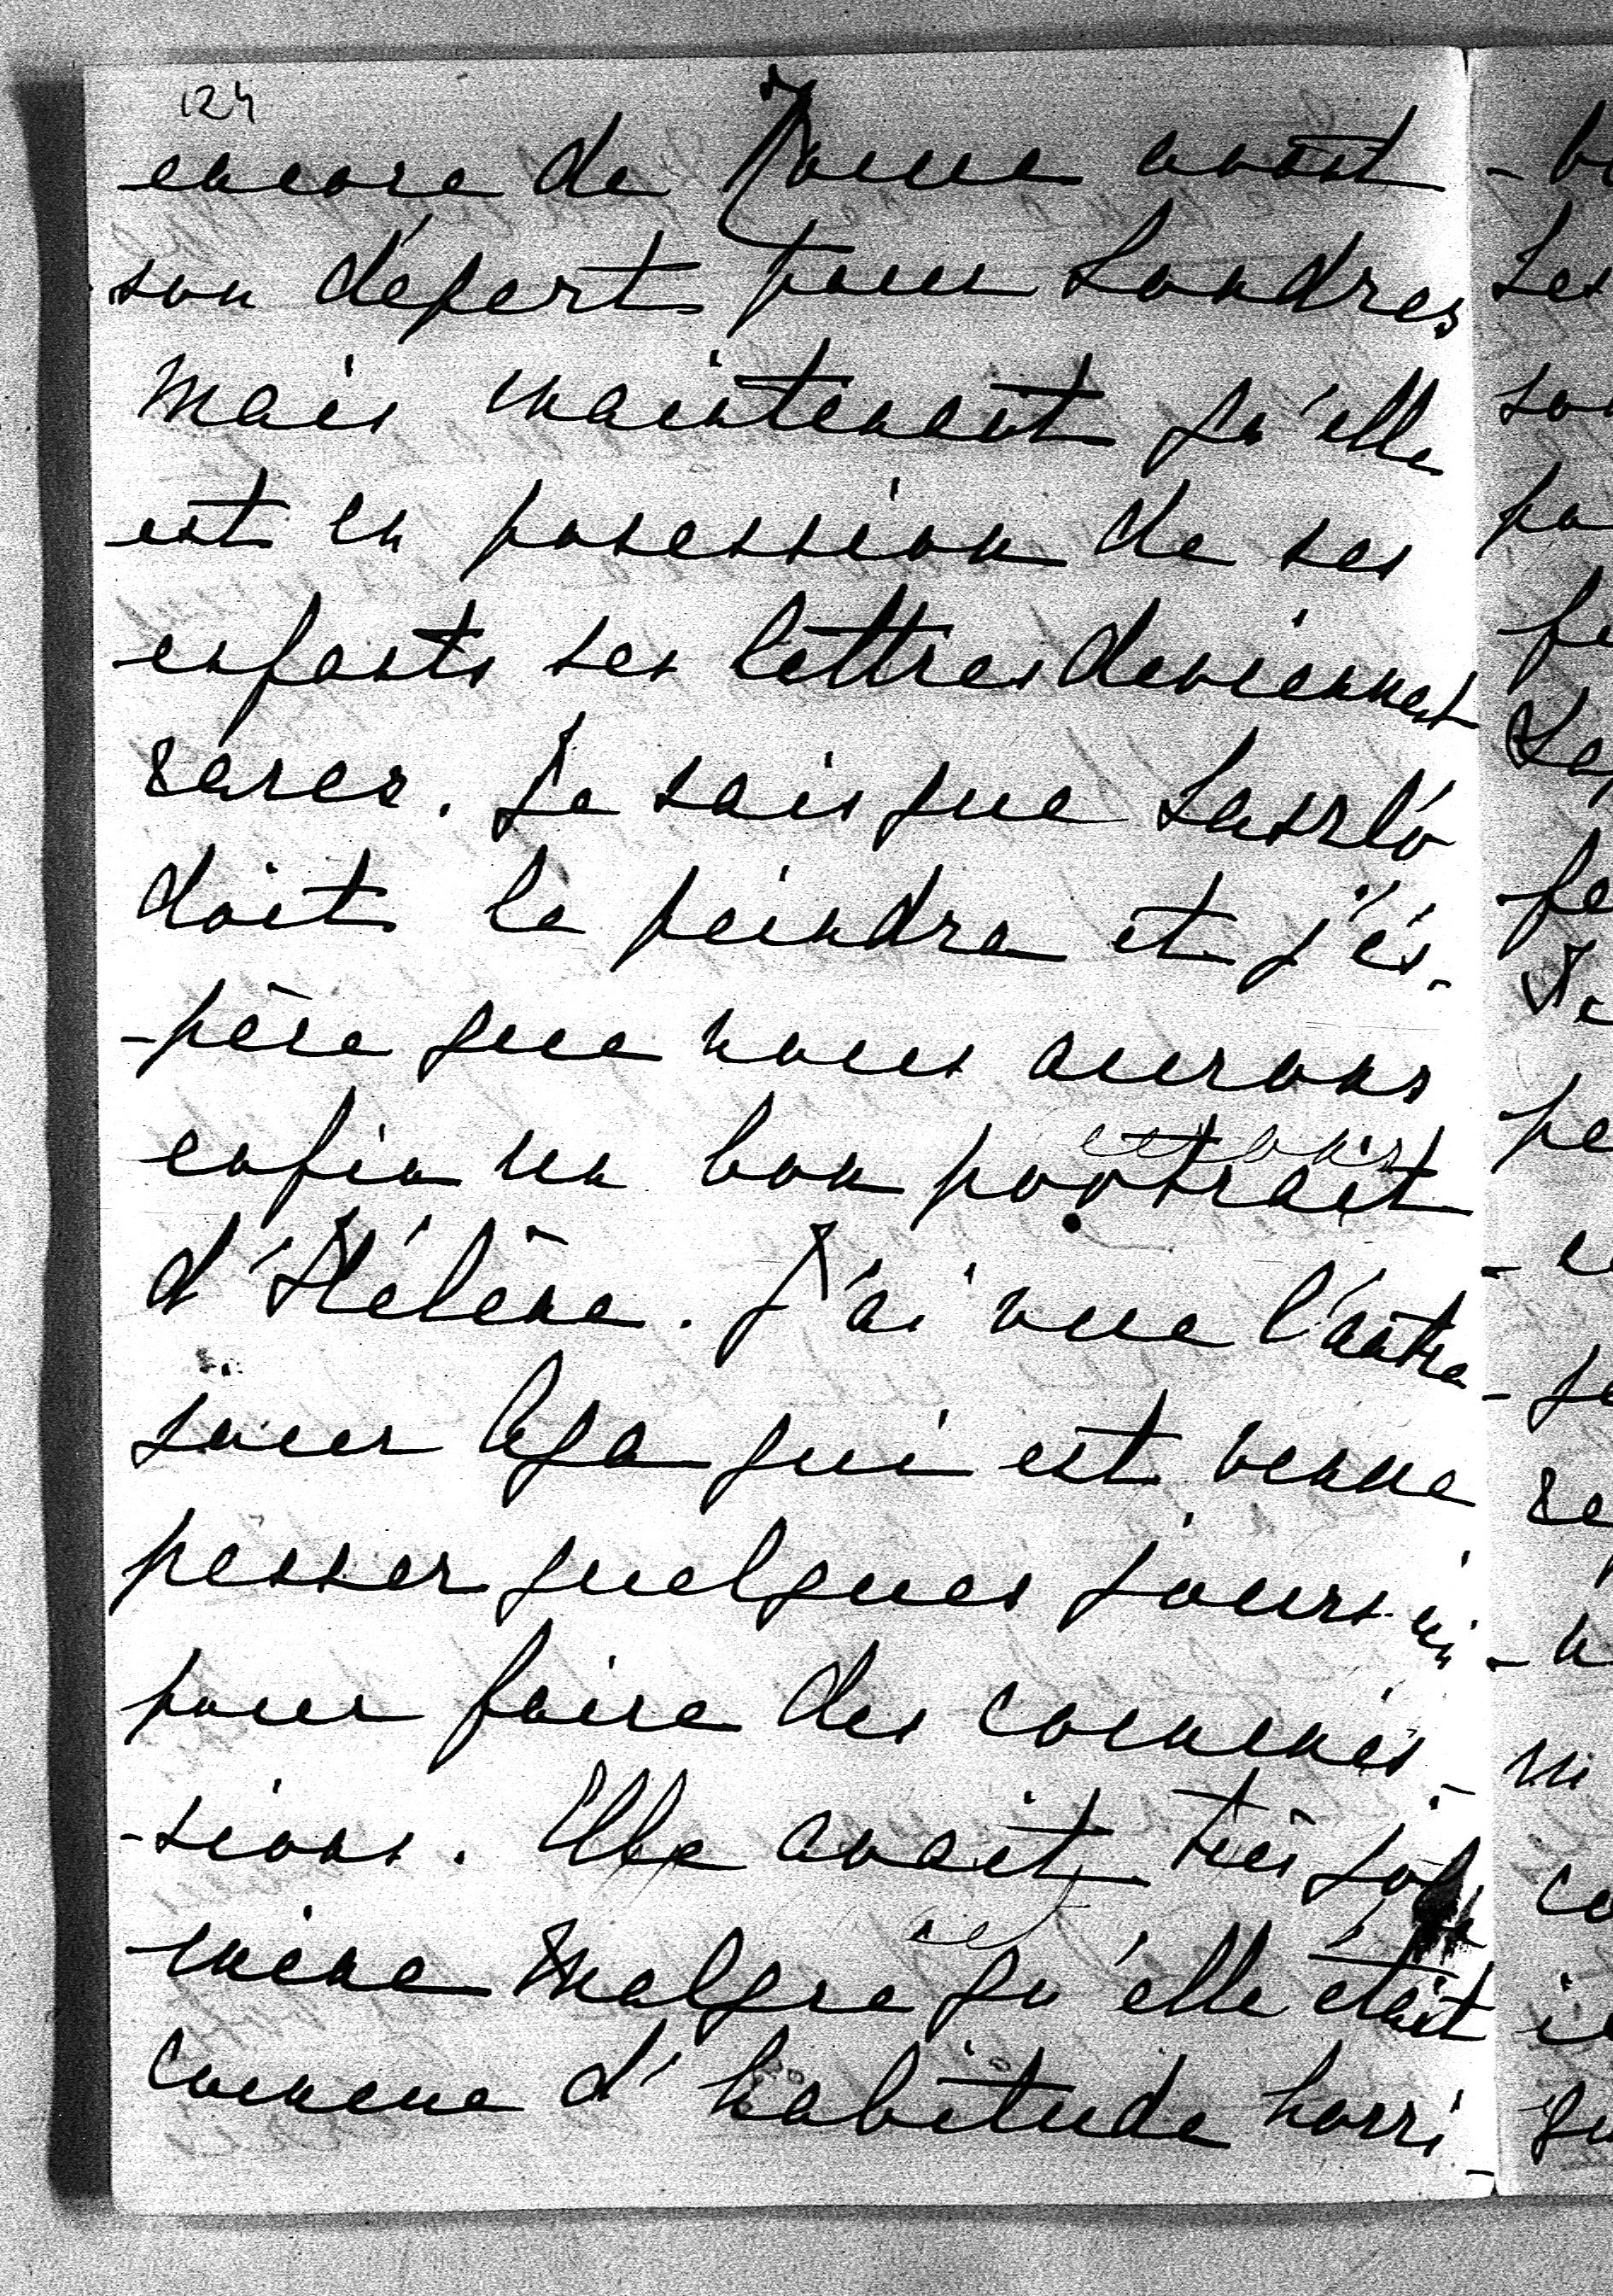 124
encore de Rome avant
son dépert pour Londres
mais maintenant qu'elle
est en posession de ses
enfants ses lettres deviennent
rares. Je sais que Laszló
doit la peindre et j'és-
-père que nous aurons
enfin un bon portrait
d'Hélène. J'ai vue l'autre
jour Lya qui est venue
passer quelques jours ici
pour faire des commis-
-sions. Elle avait très jolie
mine malgré qu'elle était
comme d'habitude horri-